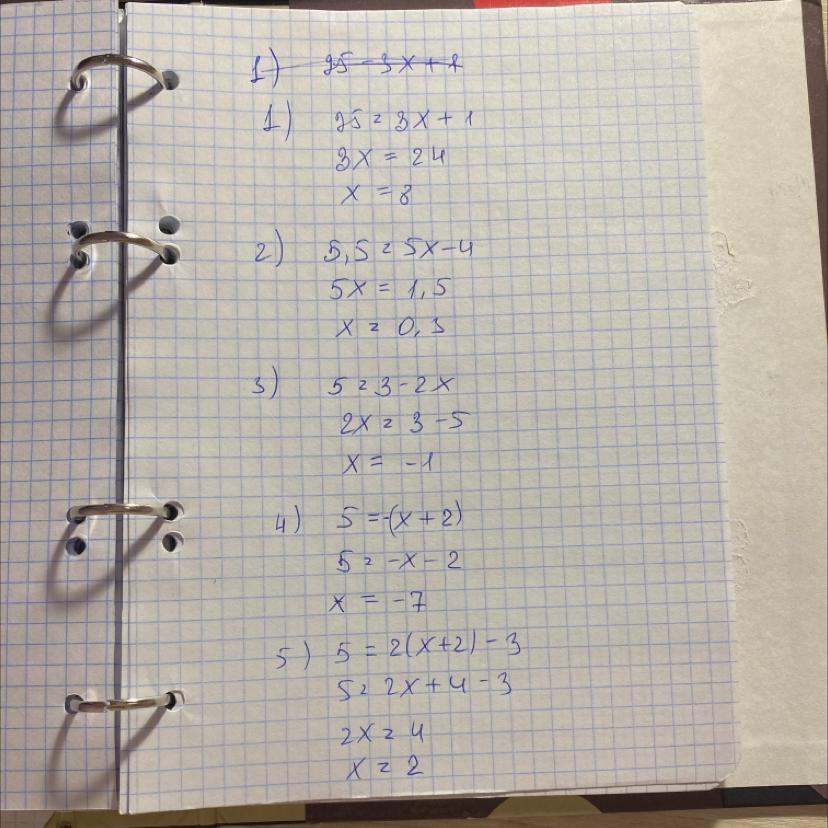 1) 25 = 3x + 1
1) 25 = 3x + 1
3x = 24
x = 8
2) 5,5 = 5x - 4
5x = 1,5
x = 0,3
3) 5 = 3 - 2x
2x = 3 - 5
x = -1
4) 5 = -(x + 2)
5 = -x - 2
x = -7
5) 5 = 2(x+2) - 3
5 = 2x + 4 - 3
2x = 4
x = 2